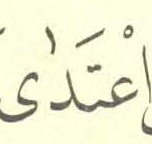 اعْتَدٰى